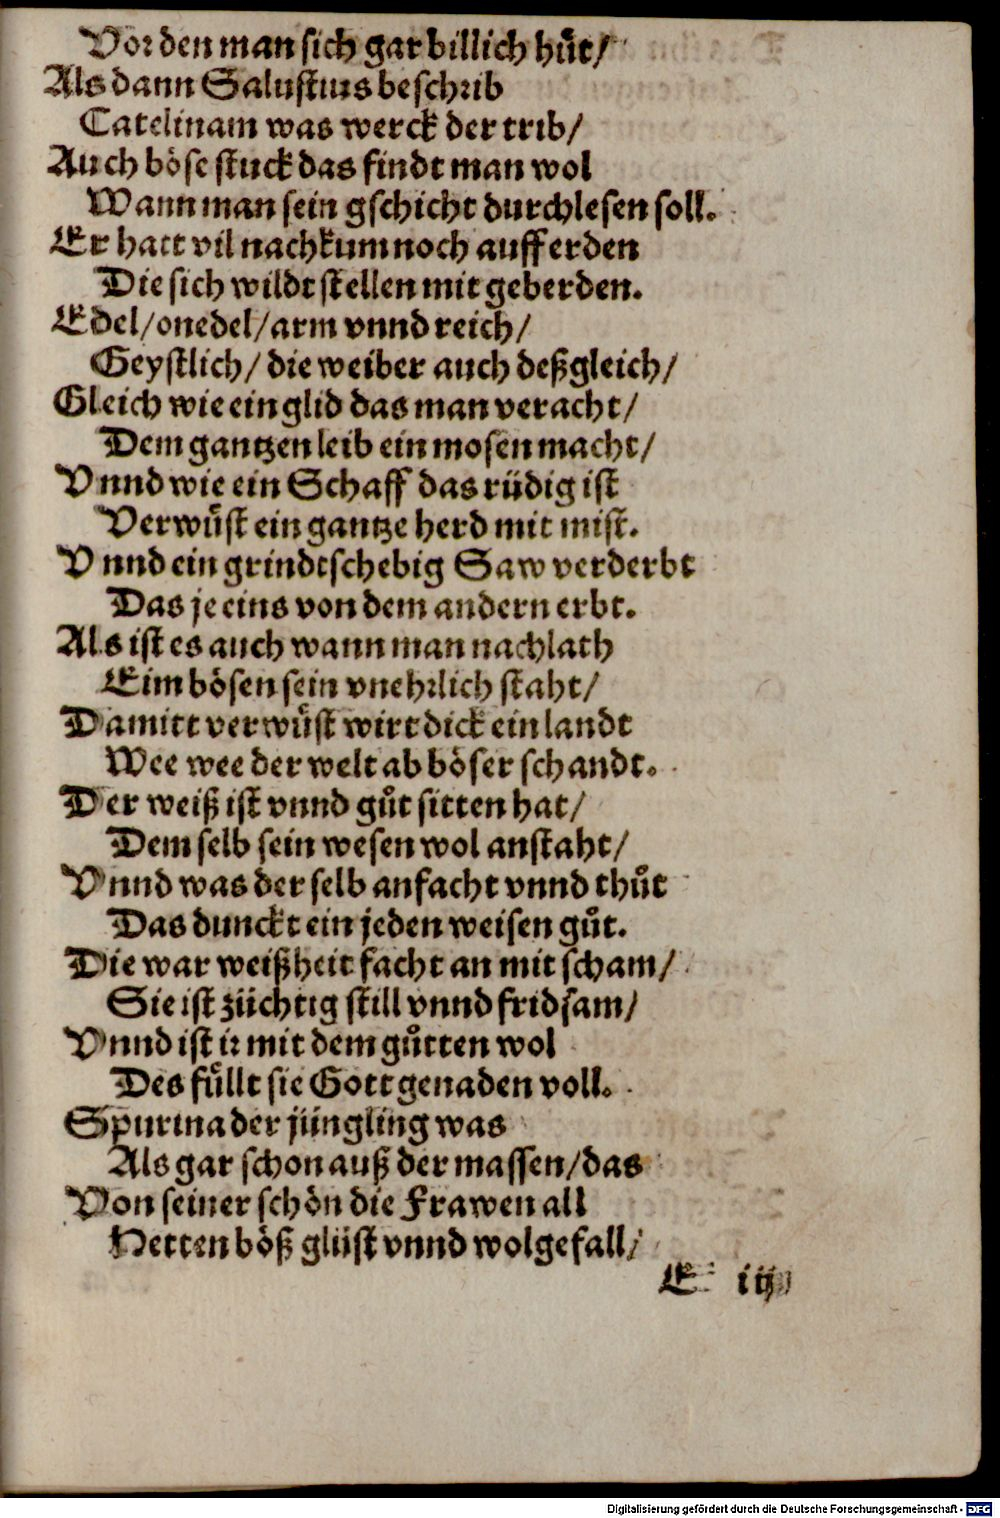 Vor den man sich gar billich hůt/
Als dann Salustius beschrib
Catelinam was werck der trib/
Auch böse stuck das findt man wol
Wann man sein gschicht durchlesen soll.
Er hatt vil nachkum noch auff erden
Die sich wildt stellen mit geberden.
Edel/onedel/arm vnnd reich/
Geystlich/ die weiber auch deßgleich/
Gleich wie ein glid das man veracht/
Dem gantzen leib ein mosen macht/
Vnnd wie ein Schaff das rüdig ist
Verwůst ein gantze herd mit mist.
Vnnd ein grindtschebig Saw verderbt
Das je eins von dem andern erbt.
Als ist es auch wann man nachlath
Eim bösen sein vnehrlich staht/
Damitt verwůst wirt dick ein landt
Wee wee der welt ab böser schandt.
Der weiß ist vnnd gůt sitten hat/
Dem selb sein wesen wol anstaht/
Vnnd was der selb anfacht vnnd thůt
Das dunckt ein jeden weisen gůt.
Die war weißheit facht an mit scham/
Sie ist züchtig still vnnd fridsam/
Vnnd ist ir mit dem gůtten wol
Des fůllt sie Gott genaden voll.
Spurina der jüngling was
Als gar schon auß der massen/das
Von seiner schön die Frawen all
Hetten böß glüst vnnd wolgefall/
E iij
Digitalisierung gefördert durch die Deutsche Forschungsgemeinschaft - DFG